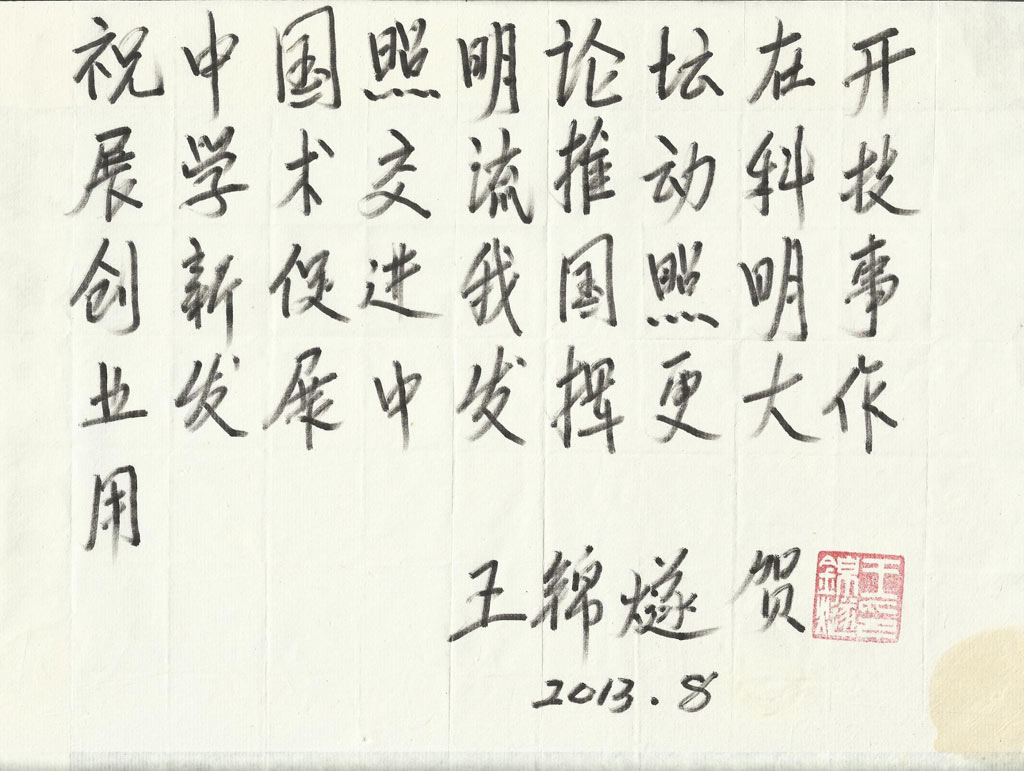 祝中国照明论坛在开
展学术交流推动科技
创新促进我国照明事
业发展中发挥更大作
用
王锦燧 贺
2013.8